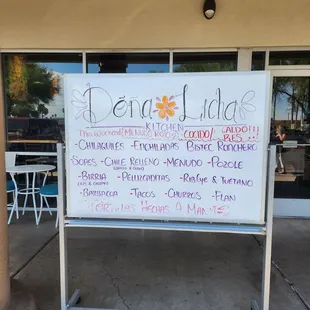 Doña Lida
KITCHEN
COCIDO/ CALDO
RES
-Chilaquiles -Enchiladas -Bistec Ranchero
-Sopes -Chile Relleno -Menudo -Pozole
-Birria -Pellizcaditas -Ribeye & Tuetano
-Barbacoa -Tacos -Churros -Flan
Tortillas Hechas A Mano